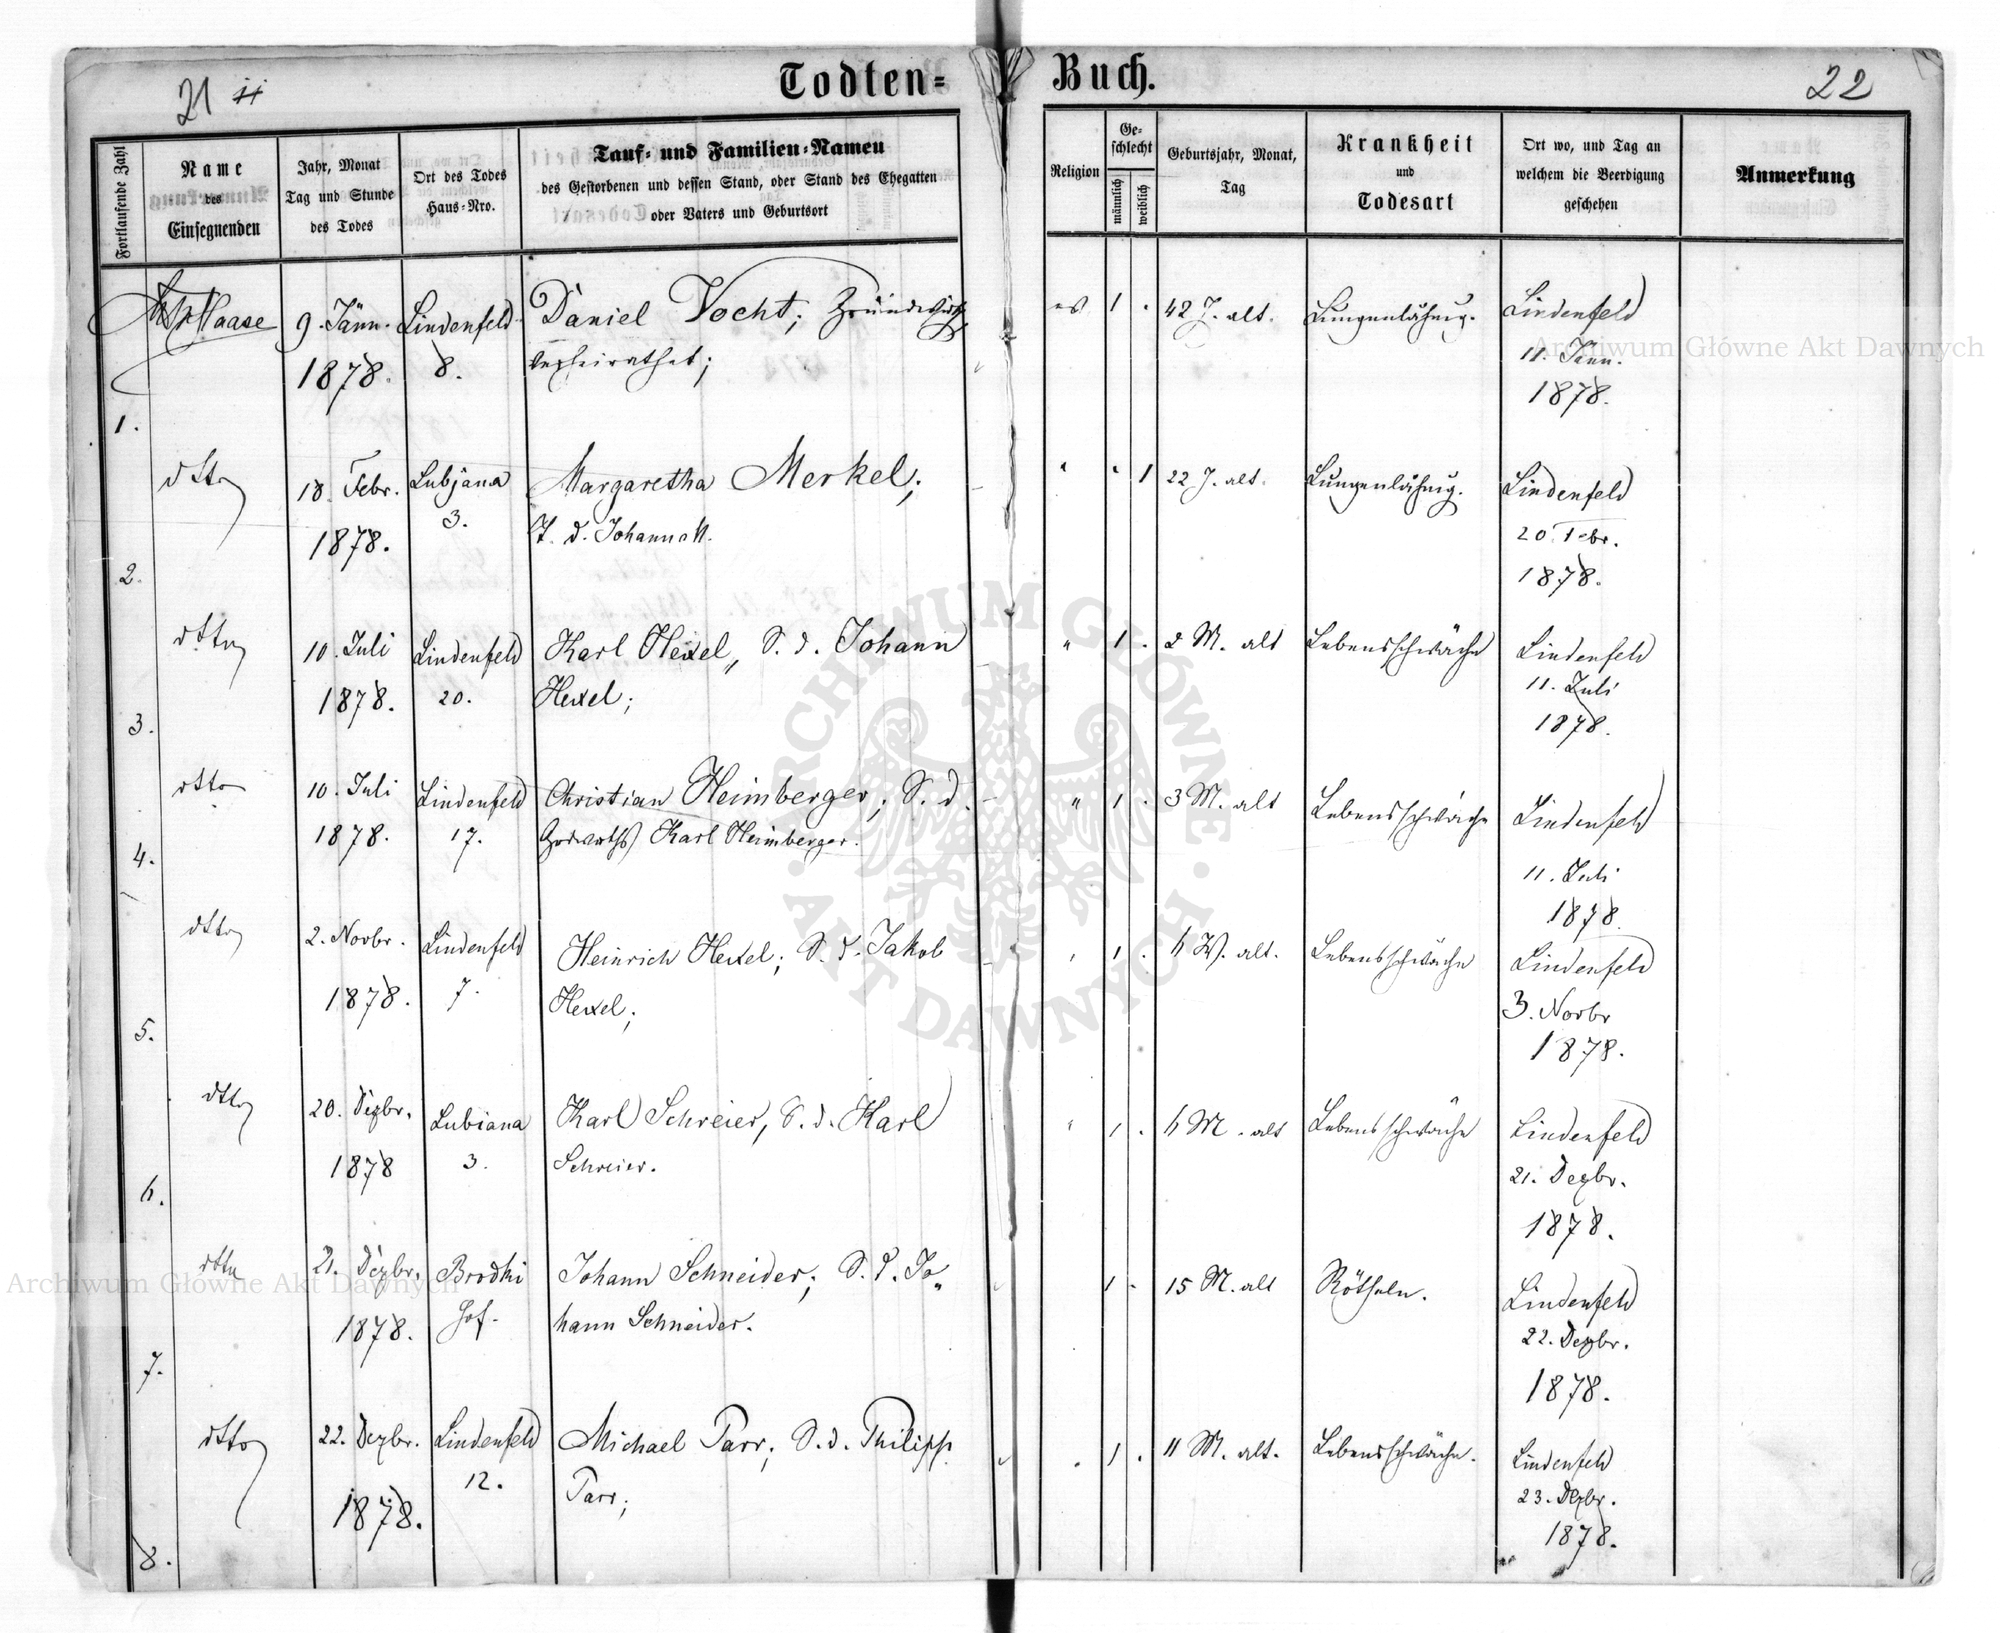 21
Todten-
Buch.
22
Fortlaufende Zahl
Name
des
Einsegnenden
Jahr, Monat
Tag und Stunde
des Todes
Ort des Todes
Haus-Nro.
Tauf- und Familien-Namen
des Gestorbenen und dessen Stand, oder Stand des Ehegatten
oder Vaters und Geburtsort
Religion
Ge-
schlecht
männlich
weiblich
Geburtsjahr, Monat,
Tag
Krankheit
und
Todesart
Ort wo, und Tag an
welchem die Beerdigung
geschehen
Anmerkung
Haase 9. Jänn. Lindenfeld Daniel Vocht; 1 . 42 J. alt. Lungenlähmg. Lindenfeld
1878. 8. verheirathet; 11. Jänn.
1878.
1.
dtto 18. Febr. Lubjana Margaretha Merkel; " " 1 22 J. alt. Lungenlähmg. Lindenfeld
1878. 3. T. d. Johann M. 20. Febr.
1878.
2.
dtto 10. Juli Lindenfeld Karl Hexel, S. d. Johann " 1 . 2 M. alt Lebensschwäche Lindenfeld
1878. 20. Hexel; 11. Juli
1878.
3.
dtto 10. Juli Lindenfeld Christian Heimberger; S. d. " 1 . 3 M. alt Lebensschwäche Lindenfeld
1878. 17. Karl Heimberger. 11. Juli
1878.
4.
dtto 2. Novbr. Lindenfeld Heinrich Hexel; S. d. Jakob " 1 . 6 W. alt. Lebensschwäche Lindenfeld
1878. 7. Hexel; 3. Novbr
1878.
5.
dtto 20. Dezbr. Lubiana Karl Schreier, S. d. Karl " 1 . 6 M. alt Lebensschwäche Lindenfeld
1878 3. Schreier. 21. Dezbr.
1878.
6.
dtto 21. Dezbr. Brodki Johann Schneider; S. d. Jo„ 1 . 15 M. alt Rötheln. Lindenfeld
1878. hof. hann Schneider. 22. Dezbr.
1878.
7.
dtto 22. Dezbr. Lindenfeld Michael Parr; S. d. Philipp " 1 . 11 M. alt. Lebensschwäche. Lindenfeld
1878. 12. Parr; 23. Dezbr.
1878.
8.
Archiwum Główne Akt Dawnych
Archiwum Główne Akt Dawnych
ARCHIWUM GŁÓWNE · AKT DAWNYCH ·